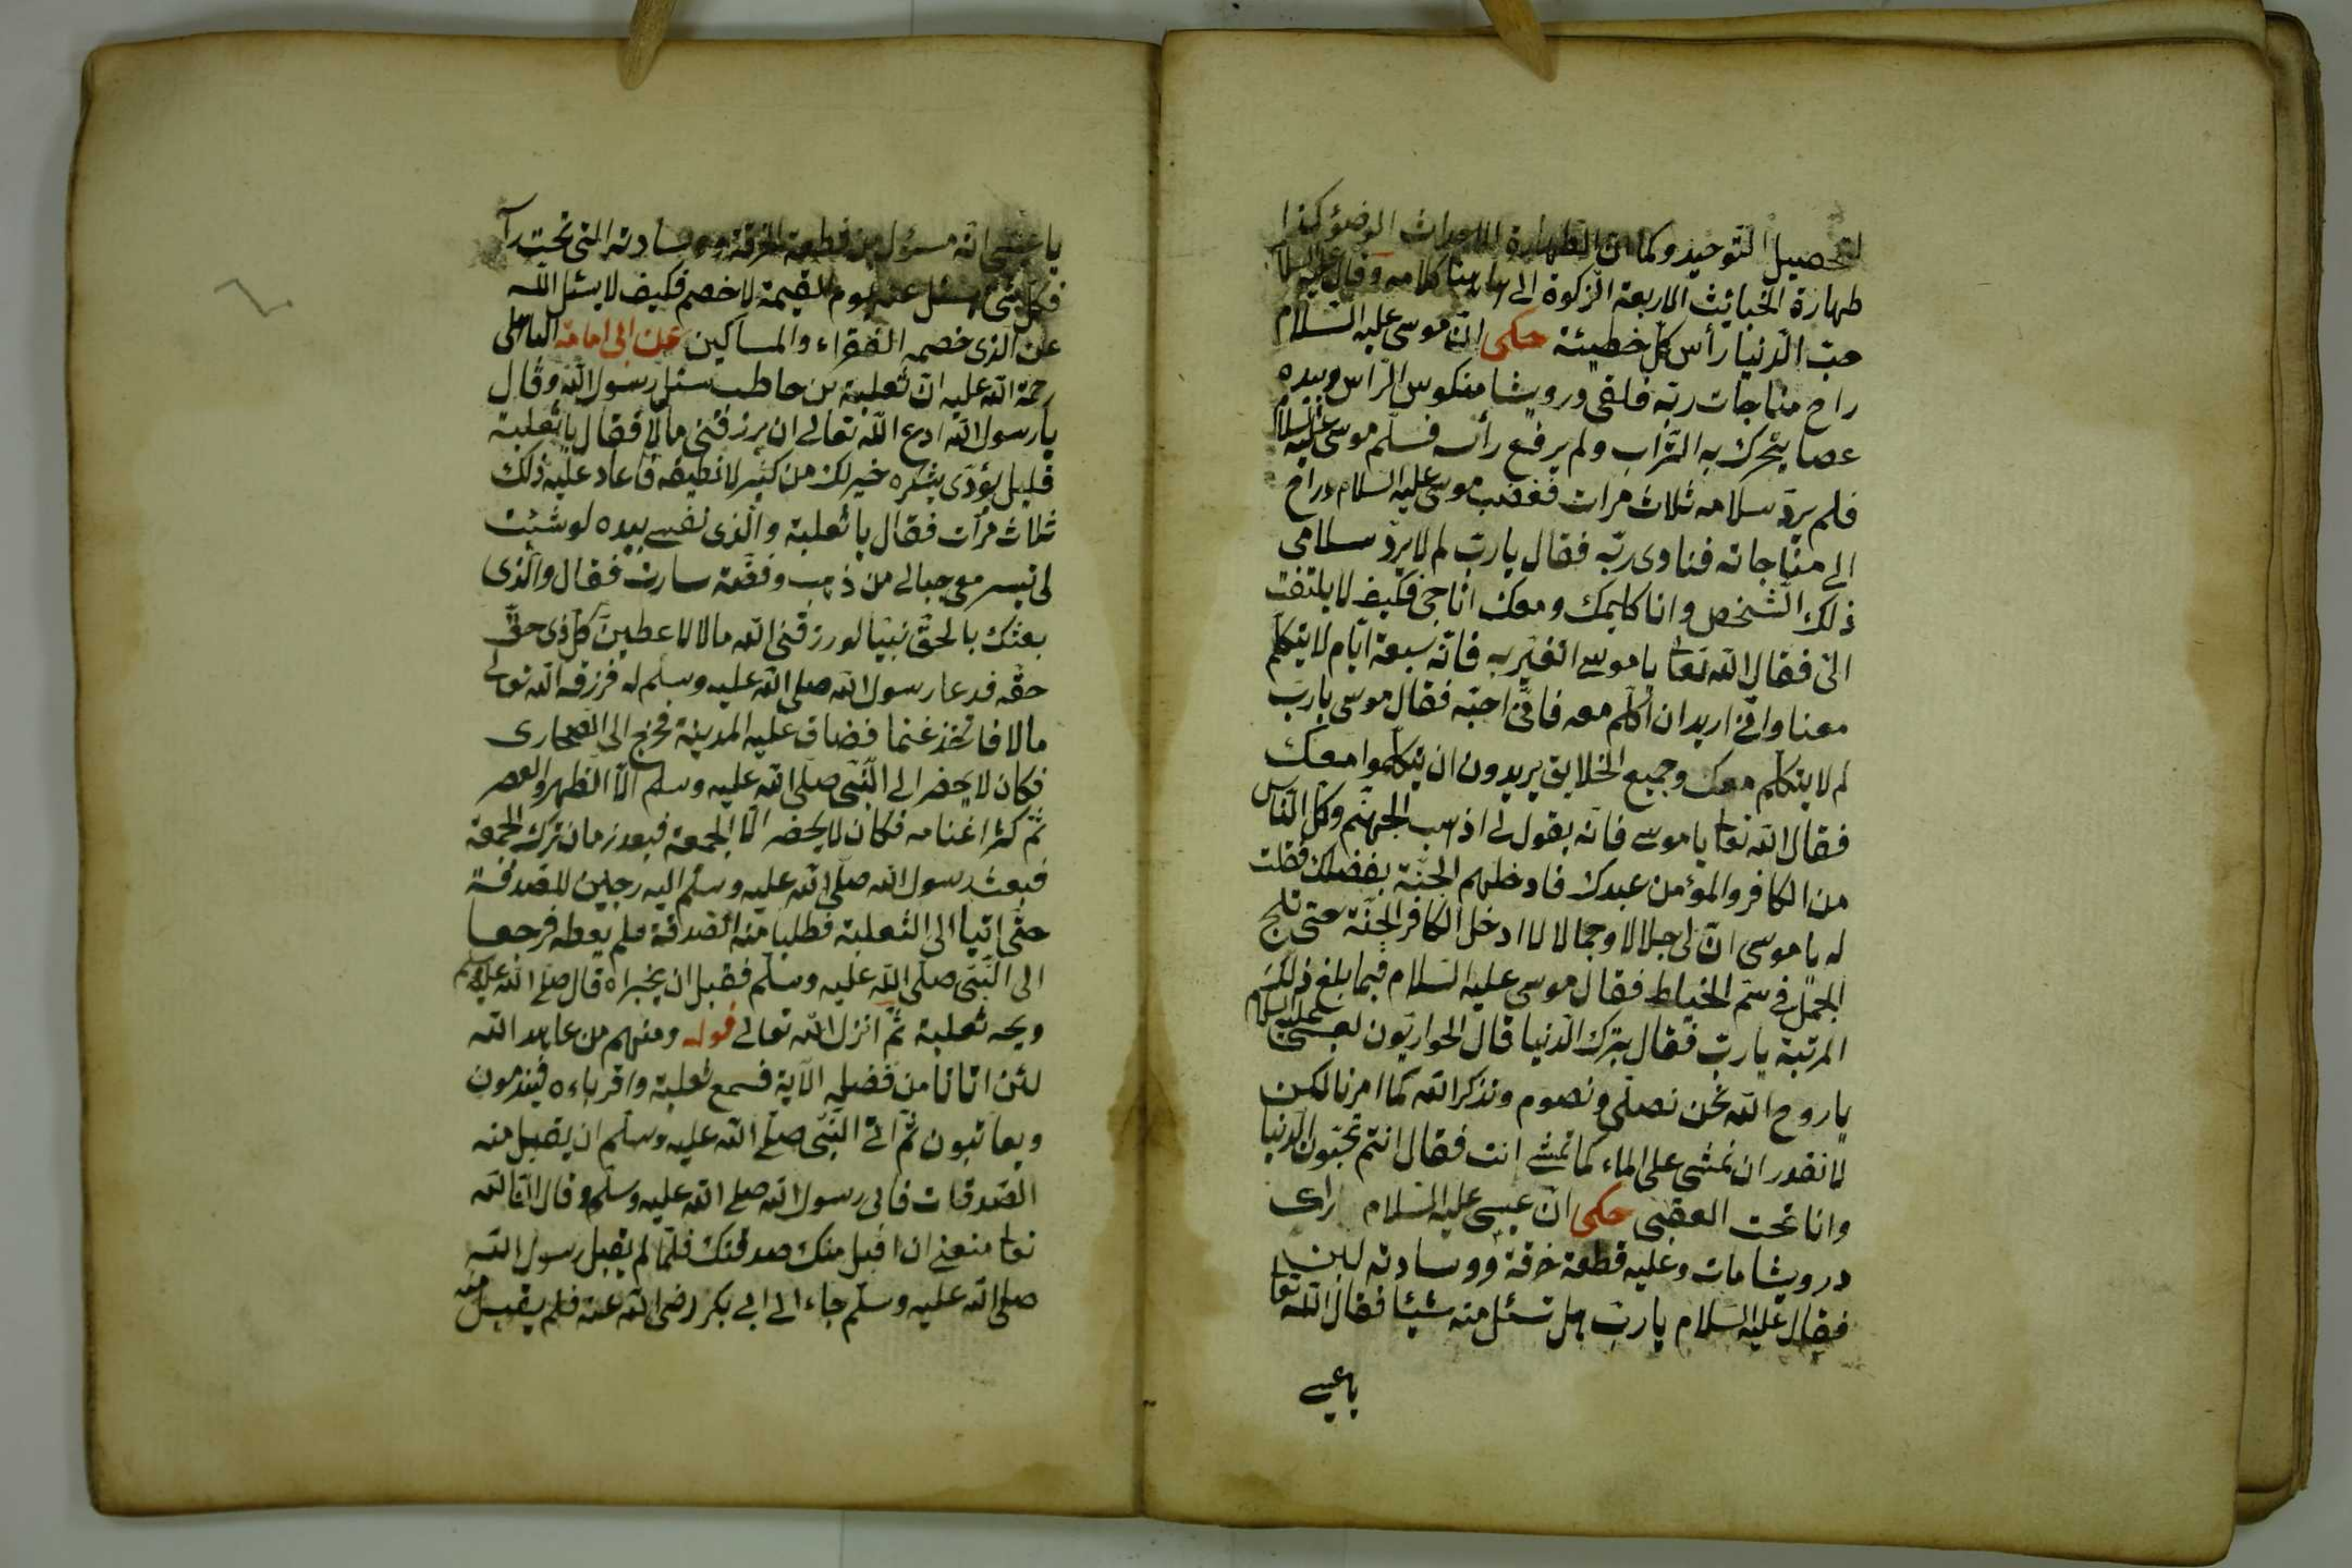 لتحصيل التوحيد وكما ان الطهارة الاحداث الوضوء كذا
طهارة الخبايث الاربعة الزكوة الى هاهنا كلامه وقال عليه السلام
حبّ الدنيا رأس كلّ خطيئة حكى انّ موسى عليه السلام
راح مناجات ربّه فلقى درويشا منكوس الرأس وبيده
عصا يحرّك به التراب ولم يرفع رأسه فسلّم موسى عليه السلام
فلم يردّ سلامه ثلاث مرات فغضب موسى عليه السلام وراح
الى مناجاته فنادى ربّه فقال يا ربّ لم لا يردّ سلامى
ذلك الشخص وانا كليمك ومعك اناجى فكيف لا يلتفت
الىّ فقال الله تعا يا موسى اتغيّر به فانّه سبعة ايّام لا يتكلّم
معنا وانّى اريد ان اكلّم معه فانّى احبّه فقال موسى يا ربّ
لم لا يتكلّم معك وجميع الخلايق يريدون ان يتكلّموا معك
فقال الله تعا يا موسى فانه يقول لى اذهب الجهنّم وكلّ النّاس
من الكافر والمؤمن عبدك فادخلهم الجنّة بفضلك فقلت
له يا موسى انّ لى جلالا وجمالا لا ادخل الكافر الجنّة حتى يلج
الجمل فى سمّ الخياط فقال موسى عليه السلام فبما بلغ ذلك
المرتبة يا ربّ فقال بترك الدنيا قال الحواريّون لعيسى عليه السلام
يا روح الله نحن نصلّى ونصوم ونذكر الله كما امرنا لكن
لا نقدر ان نمشى على الماء كما تمشى انت فقال انتم تحبّون الدنيا
وانا تحت العقبى حكى انّ عيسى عليه السلام رأى
درويشا مات وعليه قطعة خرقة ووسادته لبن
فقال عليه السلام يا ربّ هل تسئل منه شيئا فقال الله تعا
يا عيسى
يا عيسى انّه مسؤل من قطعة الخرقة ووسادته التى تحت رأ
فكلّ شئ يسئل عنه يوم القيمة لا خصم فكيف لا يسئل الله
عن الذى خصمه الفقراء والمساكين عن ابى امامة الباهلى
رحمة الله عليه انّ ثعلبة بن حاطب سئل رسول الله وقال
يا رسول الله ادع الله تعالى ان يرزقنى مالا فقال يا ثعلبة
قليل يؤدّى شكره خير لك من كثير لا تطيقه فاعاد عليه ذلك
ثلاث مرّات فقال يا ثعلبة والّذى نفسى بيده لو شئت
لى تسير معى جبالى من ذهب وفضّة سارت فقال والّذى
بعثك بالحقّ نبيّا لو رزقنى الله مالا لاعطينّ كلّ ذى حقّ
حقّه فدعا رسول الله صلى الله عليه وسلّم له فرزقه الله تعالى
مالا فاتّخذ غنما فضاق عليه المدينة فخرج الى الصحارى
فكان لا يحضر الى النّبىّ صلى الله عليه وسلم الّا الظهر والعصر
ثمّ كثر اغنامه فكان لا يحضر الّا الجمعة فبعد زمان ترك الجمعة
فبعث رسول الله صلّى الله عليه وسلّم اليه رجلين للصدقة
حتّى اتيا الى الثعلبة فطلبا منه الصدقة فلم يعطه فرجعا
الى النّبىّ صلى الله عليه وسلّم فقبل ان يخبراه قال صلى الله عليه وسلم
ويحه ثعلبة ثمّ انزل الله تعالى قوله ومنهم من عاهد الله
لئن اتانا من فضله الآية فسمع ثعلبة واقرباءه فيندمون
ويعاتبون ثمّ اتى النّبىّ صلّى الله عليه وسلّم ان يقبل منه
الصّدقات فابى رسول الله صلى الله عليه وسلّم وقال انّ الله
تعا منعنى ان اقبل منك صدقتك فلمّا لم يقبل رسول الله
صلى الله عليه وسلّم جاء الى ابى بكر رضى الله عنه فلم يقبل منه